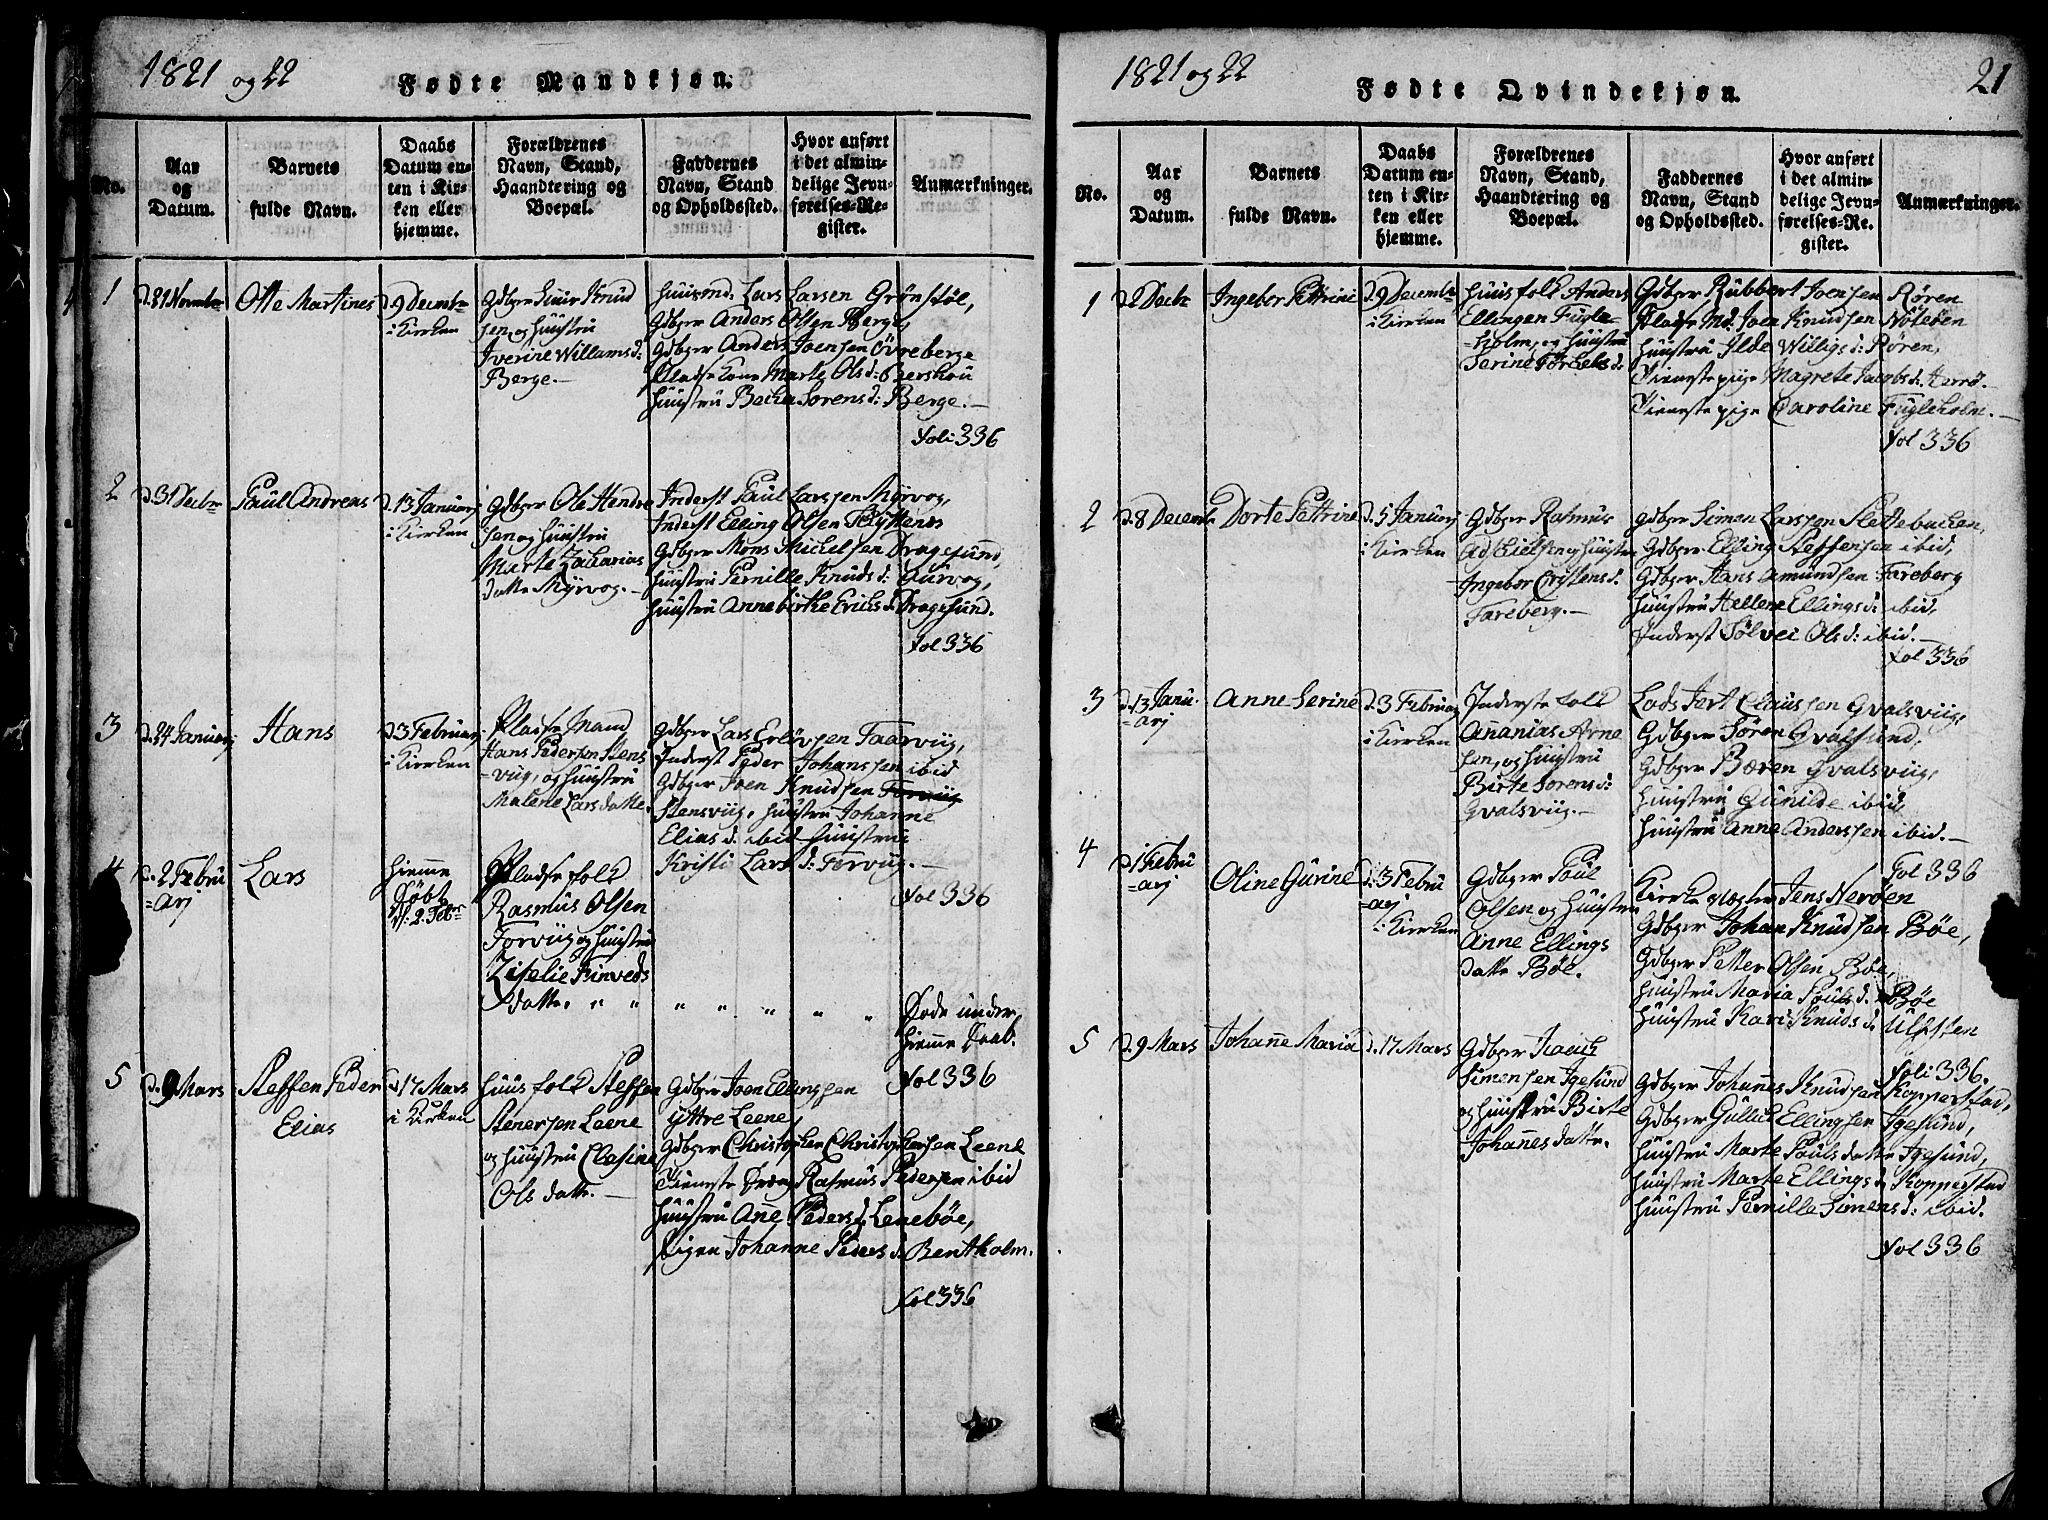 1821 og 22
Fødte Mandkjøn.
No.
Aar
og
Datum.
Barnets
fulde Navn.
Daabs
Datum en-
ten i Kir-
ken eller
hjemme.
Forældrenes
Navn, Stand,
Haandtering og
Boepæl.
Faddernes
Navn, Stand
og Opholdssted.
Hvor anført
i det almin-
delige Jevn-
førelses-Re-
gister.
Anmærkninger.
1
Otte Martines
d 9 Decembr
i Kirken
Gdbger Knud
sen, og Huustru
Iverine Willamsd:
Berge.—
Huusmd. Lars Larsen Grönstöe,
Gdbger Anders Olsen Berge,
Gdbger Anders Joensen Övreberge
Pladse kone Marte Olsd:
Huustru Sorensd: Berge.—
Foli: 336
2
d. 31 Decbr
Paul Andreas
d. 13 Januarj
i Kierken
Gdbger Ole Hendre
sen og Huustru
Marte Zacharias
datte Myrvog.—
Inderst Paul Larssen Myrvog,
Inderst Elling Olsen Flyttenes
Gdbger Mons Michelsen Dragesund,
Huustru Pernille Knudsd: Aurvog,
Huustru Annebirthe Ericksd. Dragesund.
Fol 336
3
d. 24 Januarj
Hans
d 3 Februarj
i Kierken
Pladse Mand
Hans Pedersen Stens
=vug, og Huustru
Malene Larsdatte.
Gdbger Lars Taarviig,
Inderst Peder Johanssen ibid
Gdbger Joen Knudsen
Stensviig, Huustru Johanne
Eliasd. ibid Huustru
Kristi Larsd: Forviig.—
Fol 336
4
d. 2 Febru
=arj
Lars
Hiemme
Döbt
d: 2. Febr
Pladse folk
Rasmus Olsen
Forviig og Huustru
datte. " " " " " " "
Döde under
Hiemme Daab.
Fol 336
5
d. 9 Mars
Steffen Peder
Elias
d 17 Mars
i Kirken
Huus folk Steffen
Stenersen Leene
og Huustru Clasine
Ols datte.—
Gdbger Joen Ellingsen
yttre Leene,
Gdbger Christopher Christophersen Leene
Tieneste Dreng Rasmus Pedersen ibid
Huustru Ane Pedersd. Lenebøe,
Pigen Johanne Pedersd. Bentholm.
Fol 336
1821 og 22
Fødte Qvindekjøn.
21
No.
Aar
og
Datum.
Barnets
fulde Navn.
Daabs
Datum en-
ten i Kir-
ken eller
hjemme.
Forældrenes
Navn, Stand,
Haandtering og
Boepæl.
Faddernes
Navn, Stand
og Opholdssted.
Hvor anført
i det almin-
delige Jevn-
førelses-Re-
gister.
Anmærkninger.
1
d 2 Decbr
Ingebor Pettrine
d 9 Decembr
i Kirken
Huus folk Anders
Ellingen Fugle-
=holm, og Huustru
Serine Torkelsd:
Gdbger Rubbert Joensen Røren
Pladse Md. Joen Knudsen Nöteöen
Huustru Ilde Willigsd: Røren,
Tieneste pige Magrete Jacobsd. Herrö.—
Tieneste pige Caroline Fugleholm.—
Fol 336
2
d. 8 Decembr
Dorte Pettrine
d 5 Januarj
i Kierken
Gdbger Rasmus
Ingebor Cristensd.
Fareberg.—
Gdbger Simen Larssen Slettebacken,
Gdbger Elling Steffensen ibid,
Gdbger Hans Amundsen Fareberg
Huustru Hellene Ellingsd: ibid,
Inderst Sölvei Olsd: ibid.—
Fol 336
3
d. 13 Janu-
=arj
Anne Serine
d 3 Februarj
i Kierken
Inderste folk
Ananias Arne
sen, og Huustru
Birte Sorensd:
Gvalsviig.—
Lods Claussen Gvalsviig,
Gdbger Søren Gvalsund,
Gdbger Bæren Gvalsviig,
Huustru Gunilde ibid,
Huustru Anne Anderssen ibid.—
Fol 336
4
d. 1 Febru
=arj
Oline Gurine
d. 3 Febru
=arj
i Kierken
Gdbger Poul
Olsen og Huustru
Anne Ellings
datte Bøe.
Kirke Jens Nerøen
Gdbger Johan Knudsen Bøe,
Gdbger Petter Olsen Bøe,
Huustru Maria Poulsd. Bøe
Huustru Kari Knudsd. Ulfsten
Foli 336.
5
d. 9 Mars
Johanne Maria
d. 17 Mars
Gdbger Isach
Simensen Igesund
og Huustru Birte
Johannesdatte.
Gdbger Johannes Knudsen Kopperstad,
Gdbger Gullich Ellingsen Igesund,
Huustru Marte Pouls datte Igesund,
Huustru Marte Ellingsd. Kopperstad
Huustru Pernille Simensd: ibid.
Fol 336